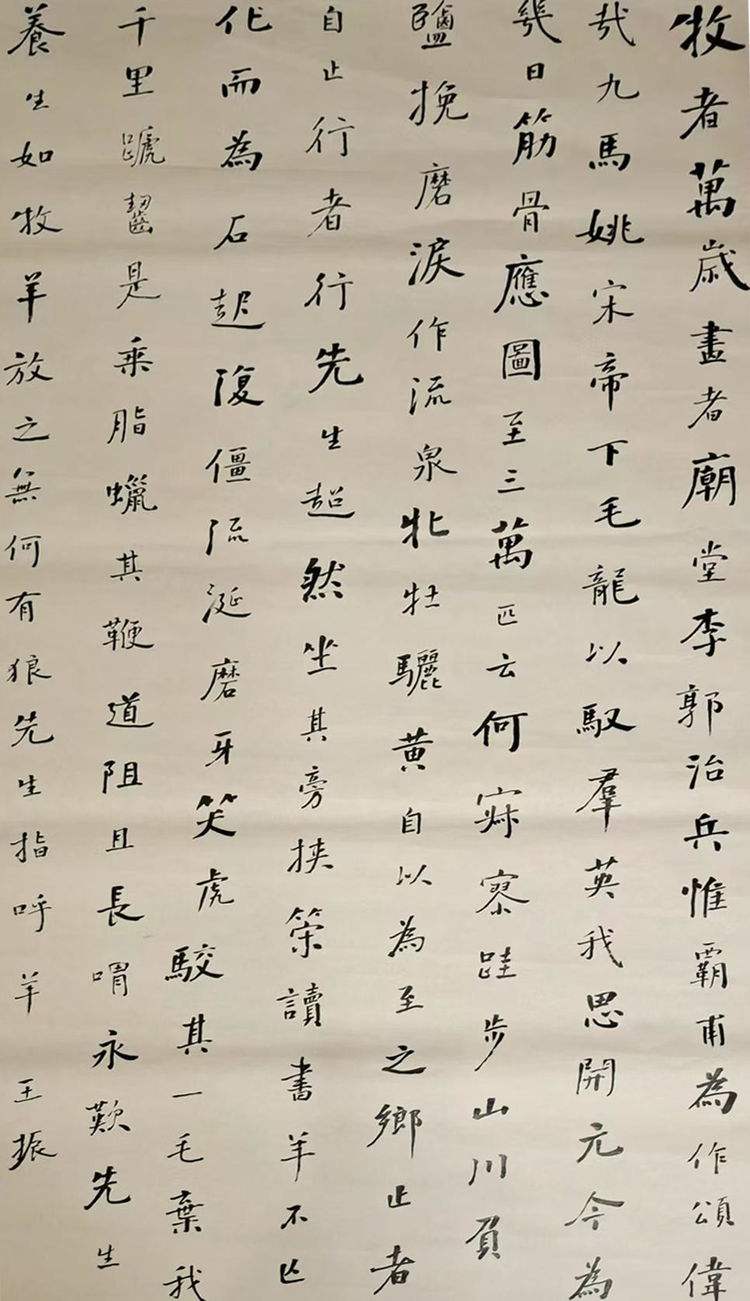 牧者萬歲畫者廟堂李郭治兵惟霸甫為作頌偉
哉九馬姚宋帝下毛龍以馭羣英我思開元今為
幾日筋骨應圖至三萬匹云何寂寥跬步山川負
鹽挽磨淚作流泉牝牡驪黃自以為至之鄉止者
自止行者行先生超然坐其旁挾筞讀書羊不亡
化而為石起復僵流涎磨牙笑虎駮其一毛棄我
千里踶齧是乘脂蠟其鞭道阻且長喟永歎先生
養生如牧羊放之無何有狼先生指呼羊 王振